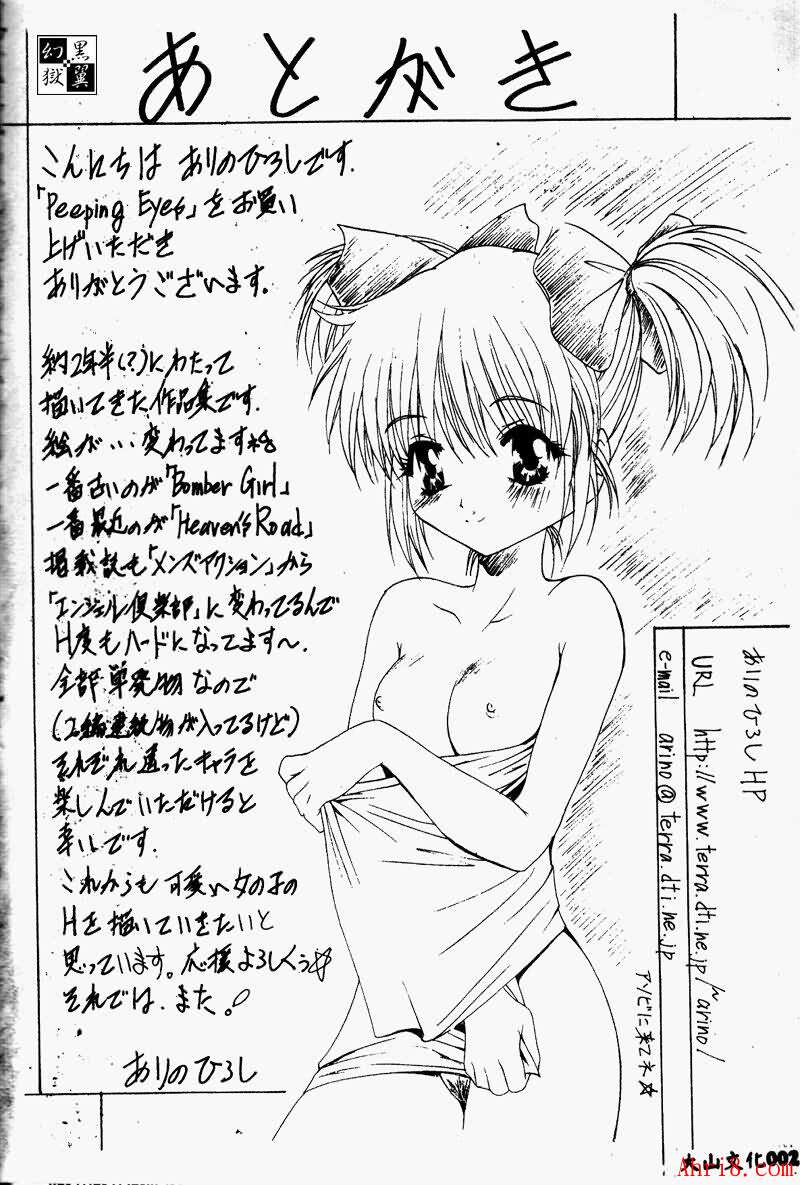 幻 黒
獄 翼
あとがき
こんにちは ありのひろしです.
「Peeping Eyes」をお買い
上げいただき
ありがとうございます.
約2年半(?)にわたって
描いてきた作品集です.
絵が・・・変わってますね
一番古いのが「Bomber Girl」
一番最近のが「Heaven's Road」
掲載誌も「メンズアクション」から
「エンジェル倶楽部」に変わってるんで
H度もハードになってます〜.
全部単発物なので
(2編連続物が入ってるけど)
それぞれ違ったキャラを
楽しんでいただけると
幸いです.
これからも可愛い女の子の
Hを描いていきたいと
思っています。応援よろしくぅ☆
それでは、また。
ありのひろし
ありのひろしHP
URL http://www.terra.dti.ne.jp/~arino/
e-mail arino@terra.dti.ne.jp
アソビに来てネ☆
大山文化002
Ahri8.com